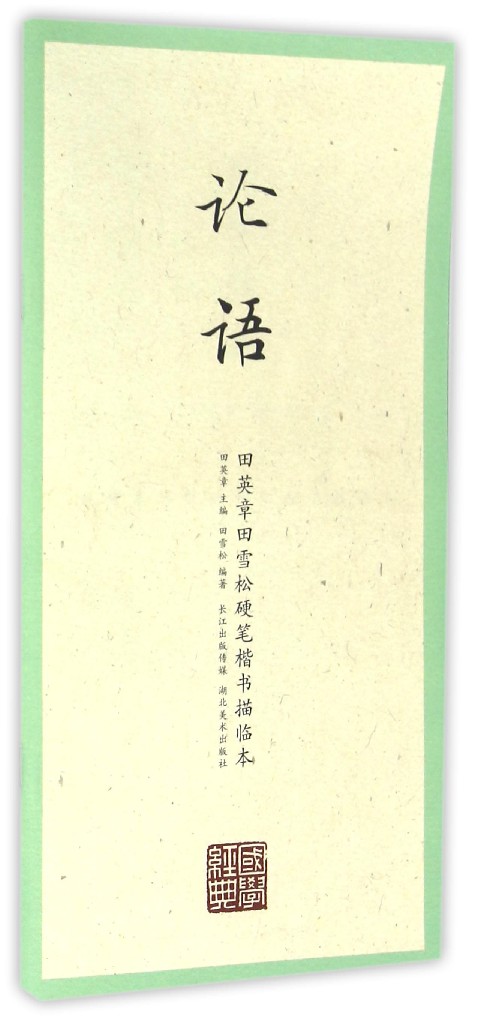 论语
田英章田雪松硬笔楷书描临本
田英章 主编 田雪松 编著 长江出版传媒 湖北美术出版社
國學
經典